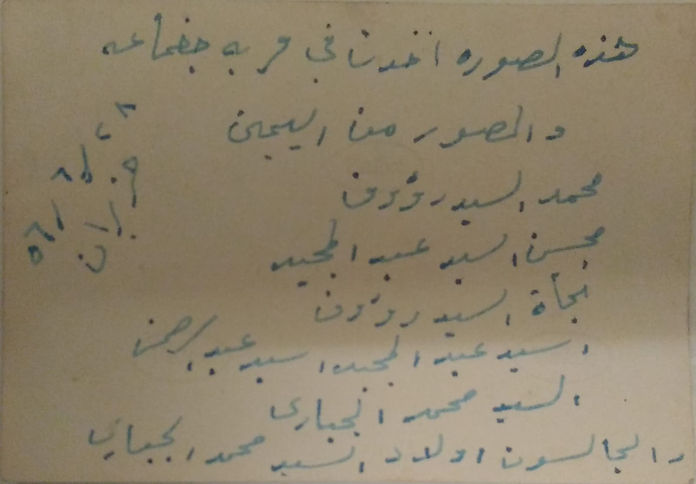 هذه الصوره اخذت في قريه
والمصور من اليمين
محمد السيد رؤوف
محسن السيد عبد المجيد
نجاة السيد رؤوف
السيد عبد المجيد السيد عبد الرحمن
السيد محمد الجباري
والجالسون اولاد السيد محمد الجباري